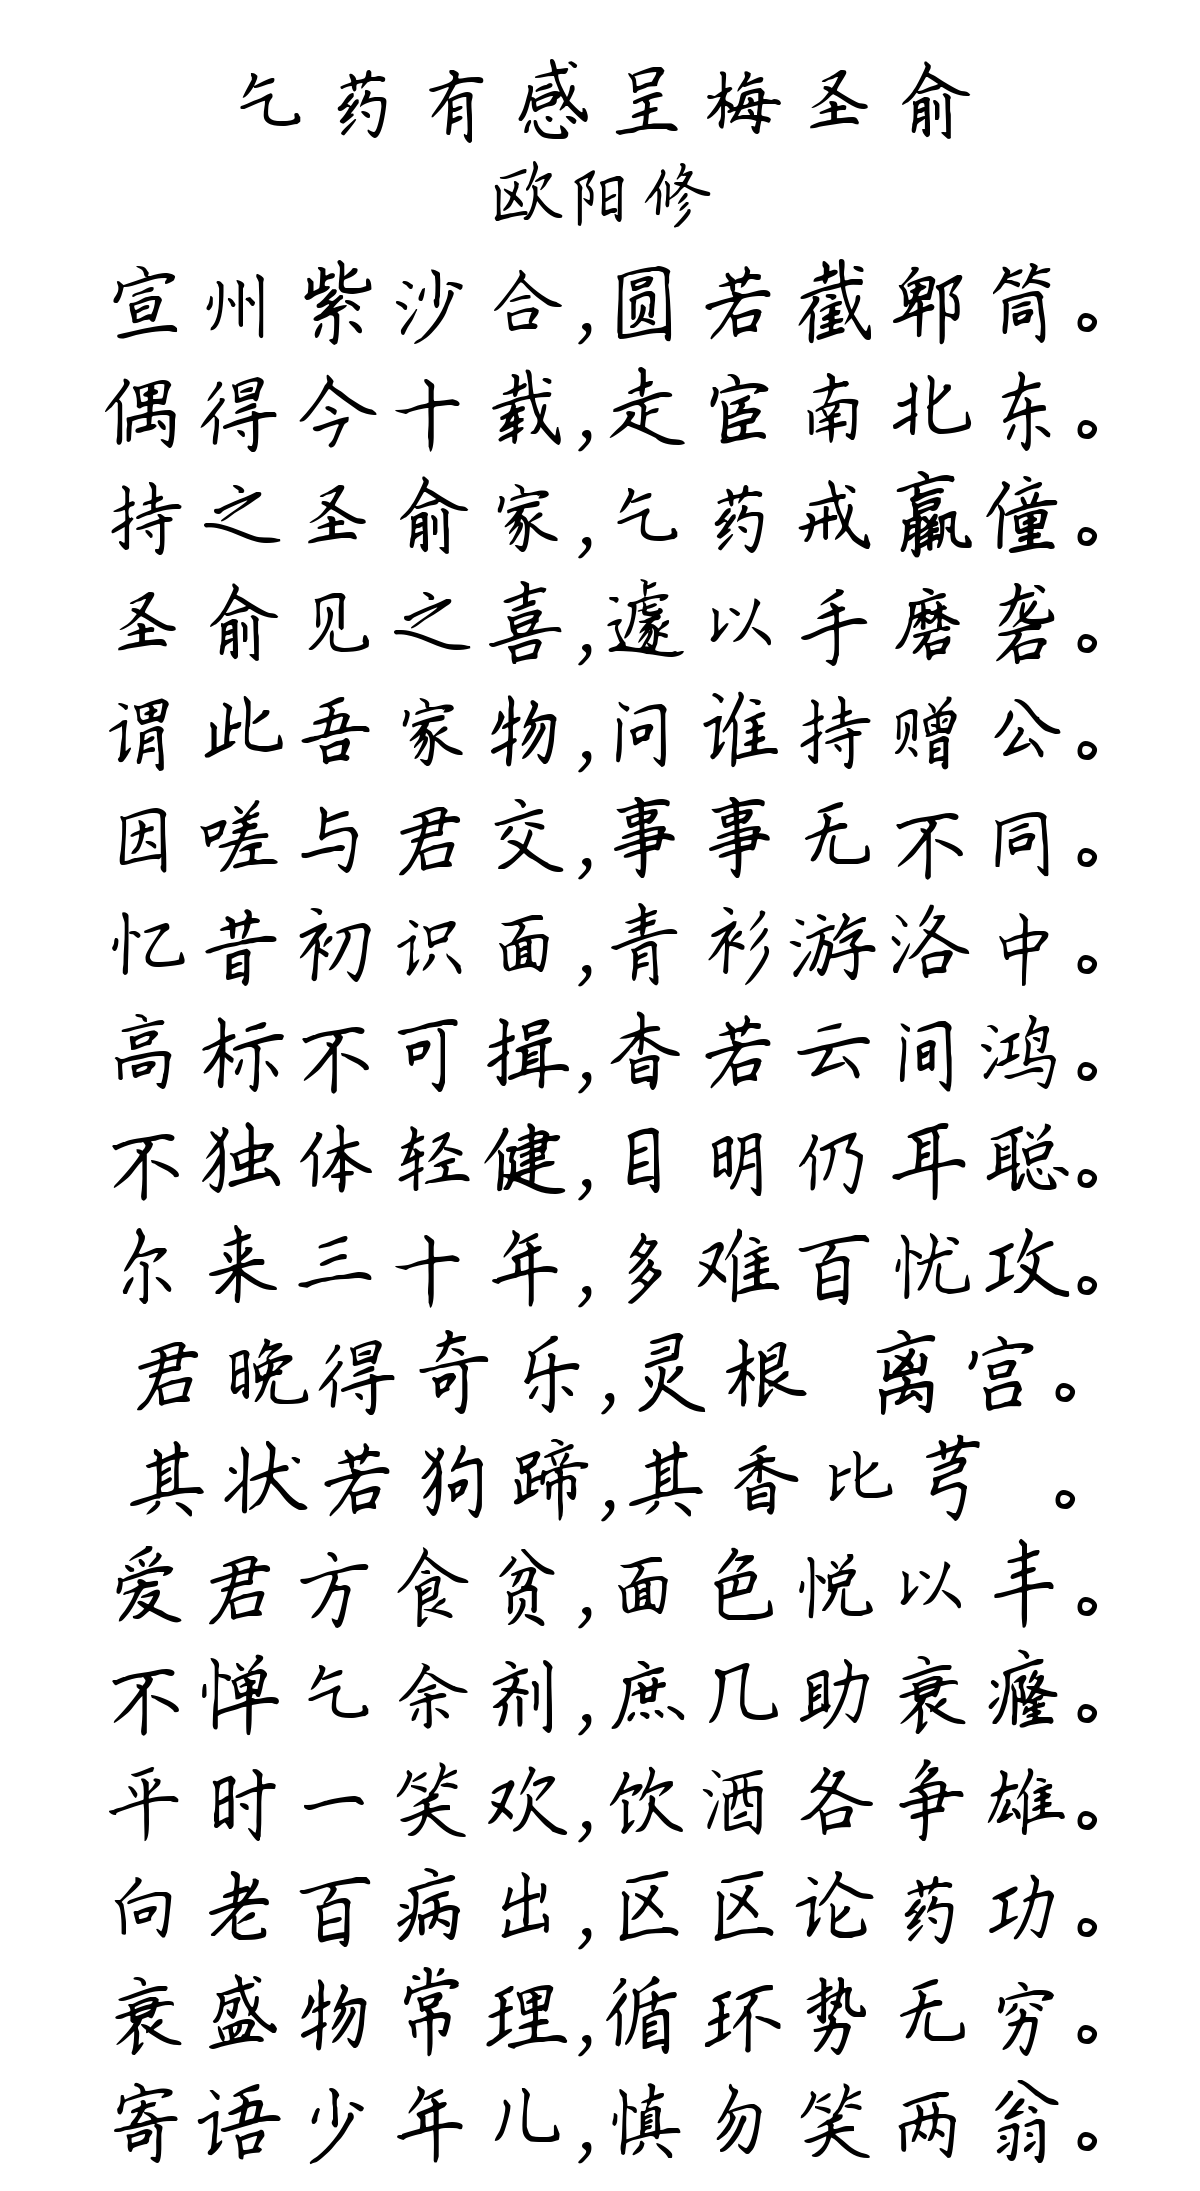 乞药有感呈梅圣俞
欧阳修
宣州紫沙合,圆若截郫筒。
偶得今十载,走宦南北东。
持之圣俞家,乞药戒羸僮。
圣俞见之喜,遽以手磨砻。
谓此吾家物,问谁持赠公。
因嗟与君交,事事无不同。
忆昔初识面,青衫游洛中。
高标不可揖,杳若云间鸿。
不独体轻健,目明仍耳聪。
尔来三十年,多难百忧攻。
君晚得奇乐,灵根 离宫。
其状若狗蹄,其香比芎 。
爱君方食贫,面色悦以丰。
不惮乞余剂,庶几助衰癃。
平时一笑欢,饮酒各争雄。
向老百病出,区区论药功。
衰盛物常理,循环势无穷。
寄语少年儿,慎勿笑两翁。